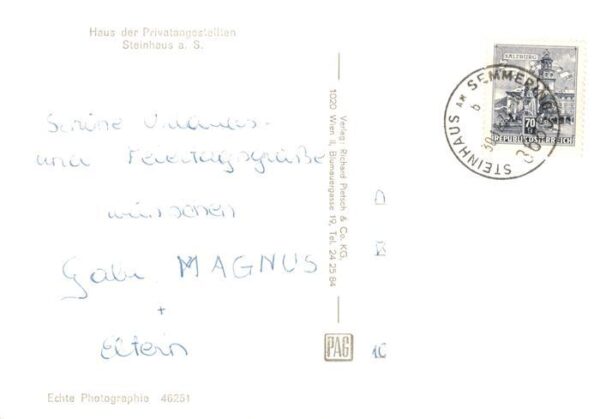 Haus der Privatangestellten
Steinhaus a. S.
Schöne Urlaubs-
und Feiertagsgrüße
wünschen
Gabi MAGNUS
+
Eltern
Echte Photographie 46251
Verlag: Richard Pietsch & Co. KG,
1020 Wien II, Blumauergasse 19, Tel. 24 25 84
PAG
SALZBURG
70
REPUBLIK ÖSTERREICH
STEINHAUS AM SEMMERING